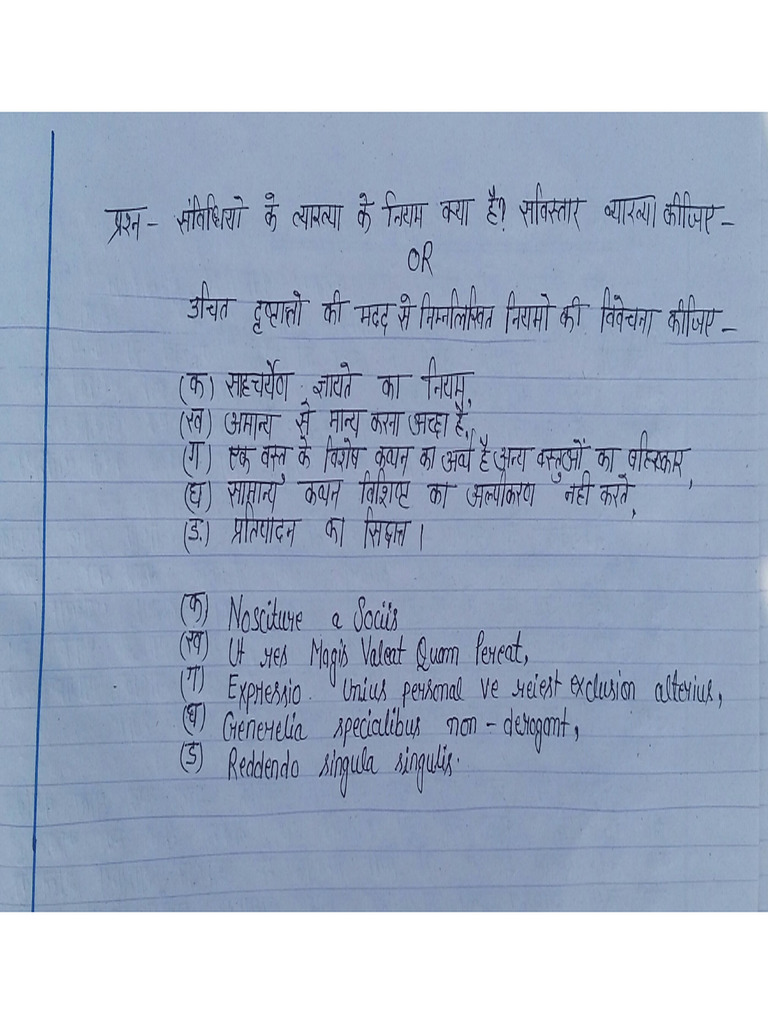 प्रश्न - संविधियो के व्याख्या के नियम क्या है? सविस्तार व्याख्या कीजिए -
OR
उचित दृष्टान्तो की मदद से निम्नलिखित नियमो की विवेचना कीजिए -
(क) साहचर्येण ज्ञायते का नियम,
(ख) अमान्य से मान्य करना अच्छा है,
(ग) एक वस्तु के विशेष कथन का अर्थ है अन्य वस्तुओं का बहिस्कार,
(घ) सामान्य कथन विशिष्ट का अल्पीकरण नही करते,
(ङ.) प्रतिपादन का सिद्धान्त।
(क) Nosciture a Sociis
(ख) Ut res Magis Valeat Quam Pereat,
(ग) Expressio. Unius personal ve reiest exclusion alterius,
(घ) Generelia specialibus non - derogant,
(ङ) Reddendo singula singulis.